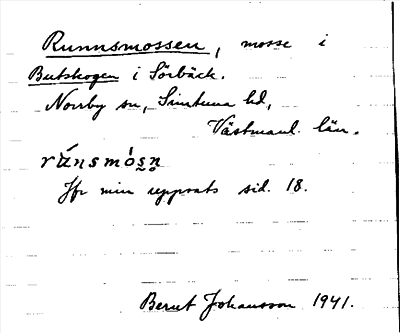 Runnsmossen, mosse i
Butskogen i Sörbäck.
Norrby sn, Simtuna hd,
Västmanl. län.
rúnsmòsn̥
Jfr min uppsats sid. 18.
Bernt Johansson 1941.